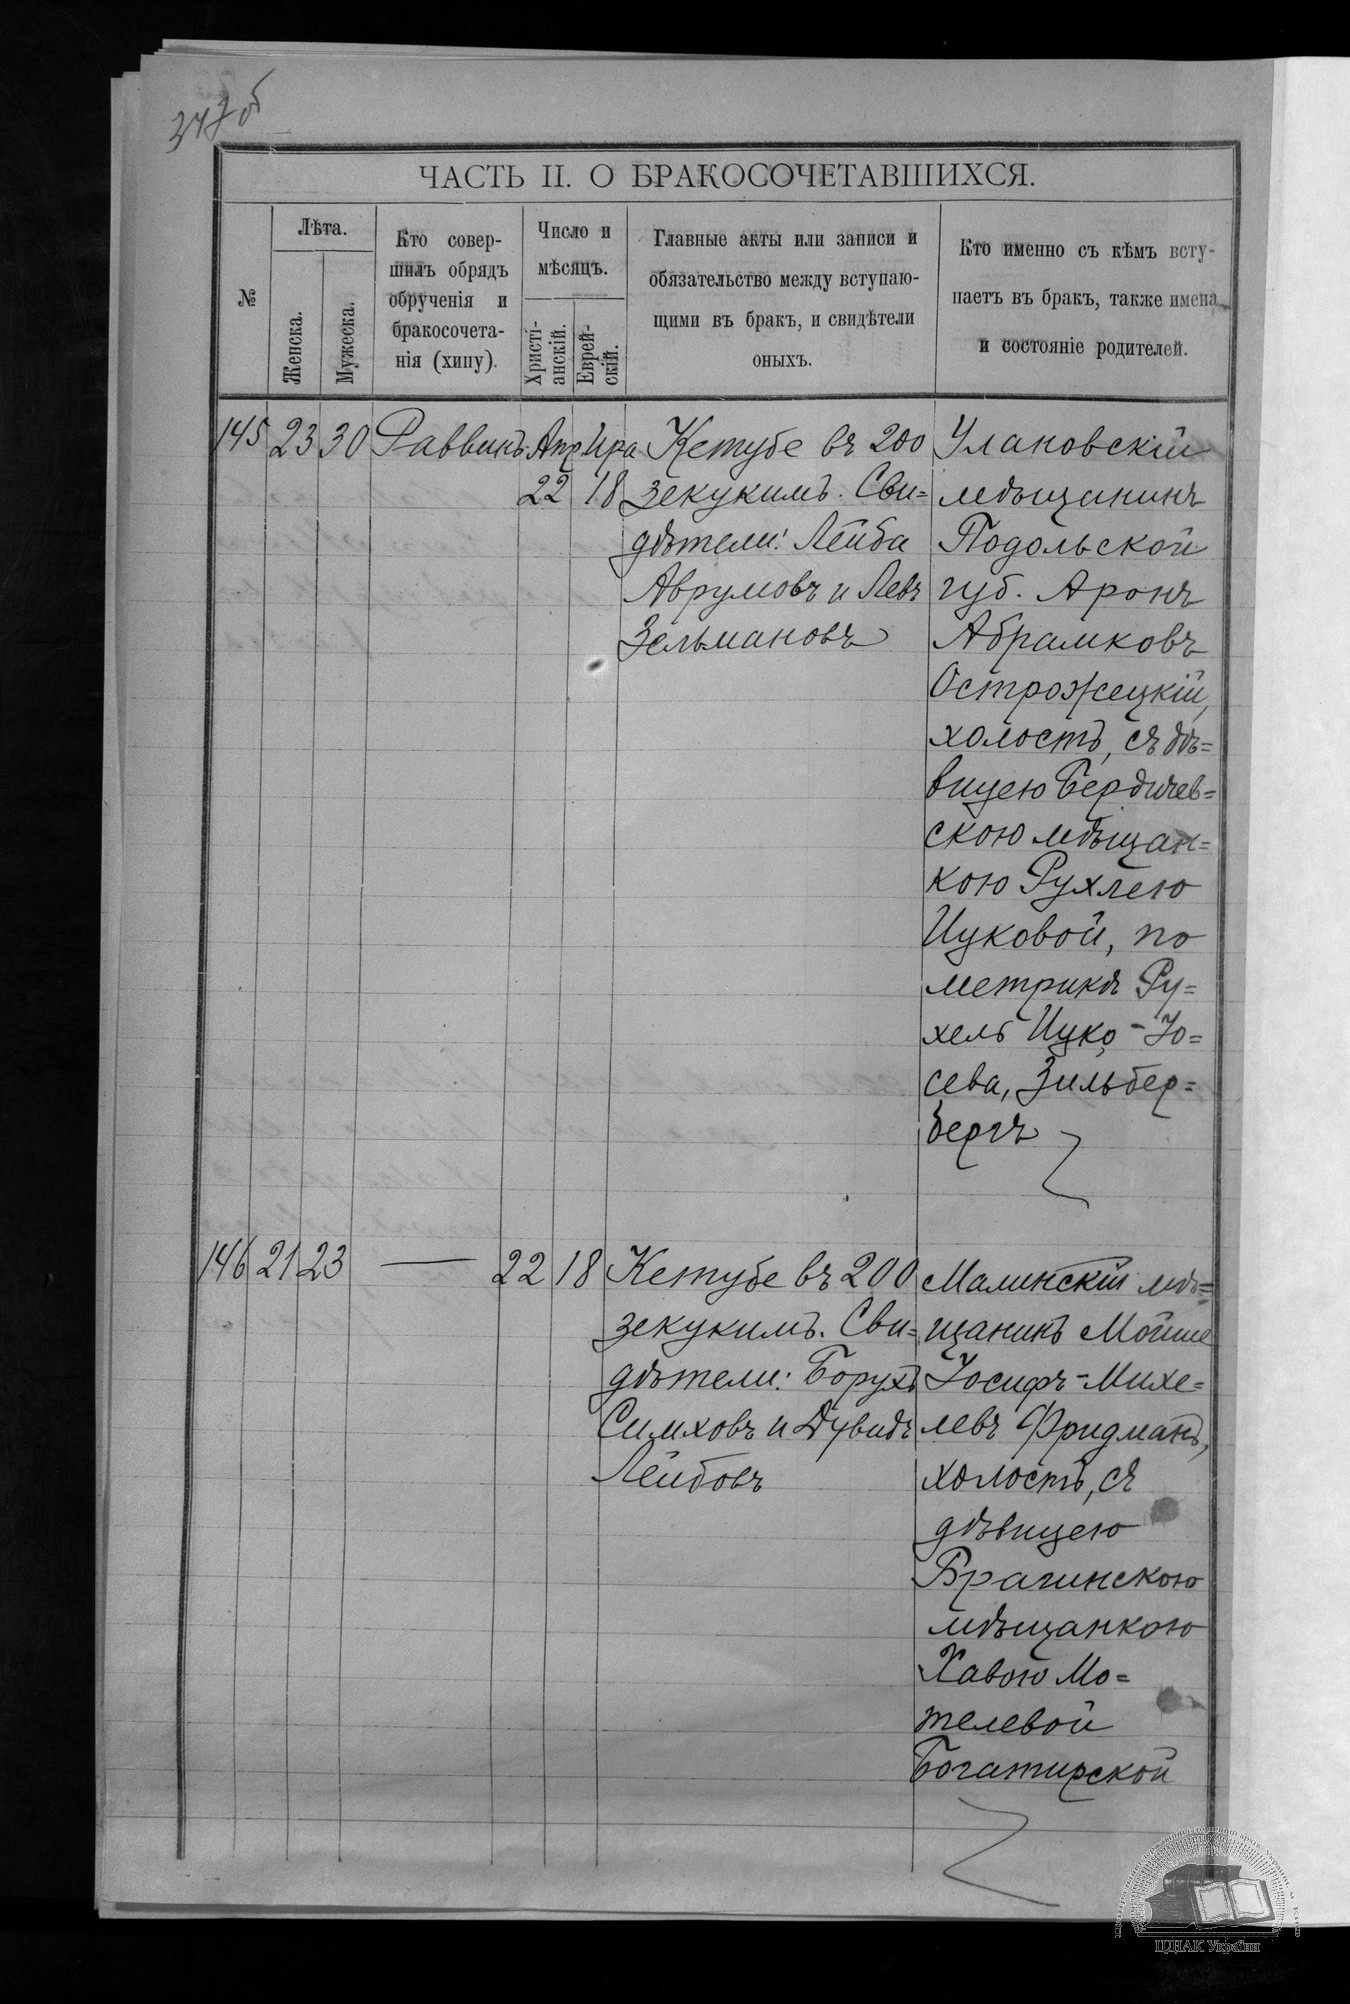 347 об
ЧАСТЬ II. О БРАКОСОЧЕТАВШИХСЯ.
№
Лѣта.
Женска.
Мужеска.
Кто совер-
шилъ обрядъ
обрученія и
бракосочета-
нія (хипу).
Число и
мѣсяцъ.
Христі-
анскій.
Еврей-
скій.
Главные акты или записи и
обязательство между вступаю-
щими въ бракъ, и свидѣтели
оныхъ.
Кто именно съ кѣмъ всту-
паетъ въ бракъ, также имена
и состояніе родителей.
145 23 30 Раввинъ Апр Ира
22 18
Кетубе въ 200
зекукимъ. Сви-
дѣтели: Лейба
Аврумовъ и Левъ
Зельмановъ
Улановскій
мѣщанинъ
Подольской
губ. Аронъ
Абрамковъ
Острожецкій,
холостъ, съ дѣ-
вицею Бердичев-
скою мѣщан-
кою Рухлею
Ицковой, по
метрикѣ Ру-
хель Ицко-Іо-
сева, Зильбер-
бергъ
146 21 23 — 22 18
Кетубе въ 200
зекукимъ. Сви-
дѣтели: Борухъ
Симховъ и Дувидъ
Лейбовъ
Малинскій мѣ-
щанинъ Мойше
Іосифъ-Михе-
левъ Фридманъ,
холостъ, съ
дѣвицею
Брагинскою
мѣщанкою
Хавою Мо-
телевой
Богатирской
ЦДІАК України